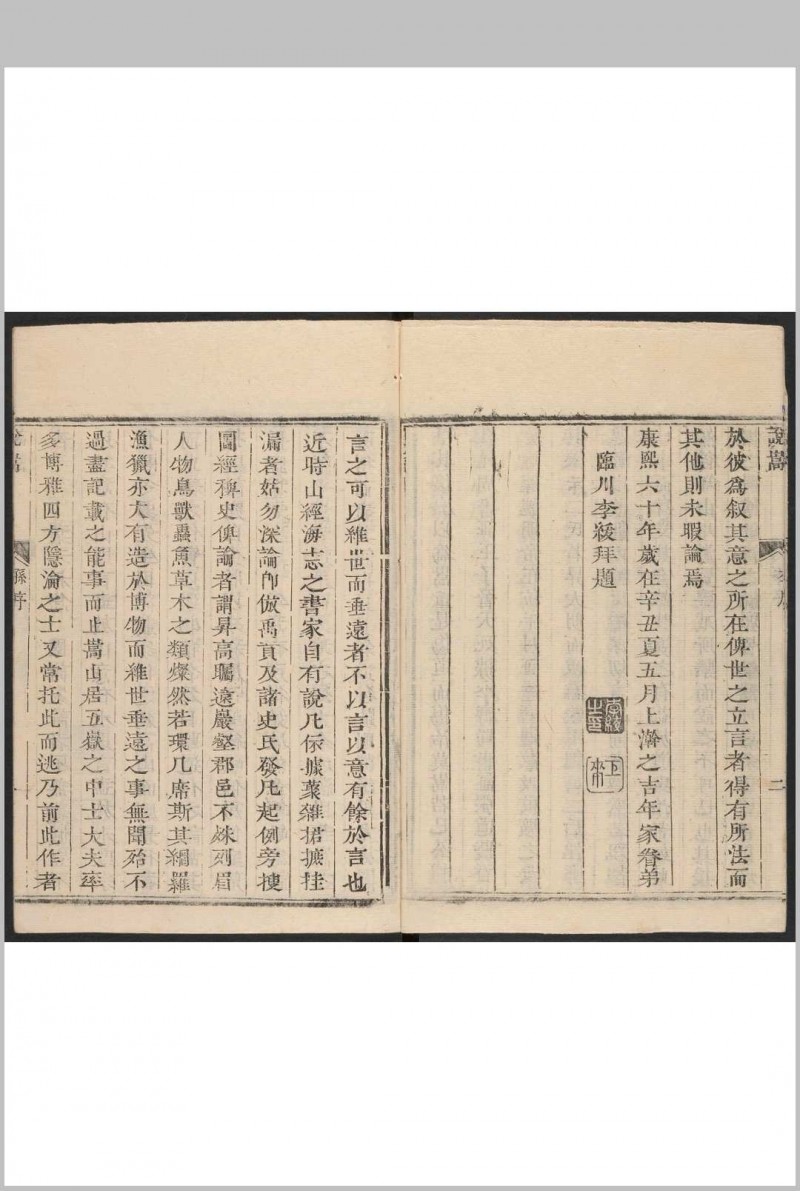 說嵩
於彼為叙其意之所在俾世之立言者得有所法而
其他則未暇論焉
康熙六十年歲在辛丑夏五月上澣之吉年家眷弟
臨川李紱拜題
李紱之印
二
言之可以維世而垂遠者不以言以意有餘於言也
近時山經海志之書家自有說凡依據裒雜捃摭挂
漏者姑勿深論卽倣禹貢及諸史氏發凡起例旁搜
圖經稗史俾論者謂昇高矚遠巖壑郡邑不殊列眉
人物鳥獸蟲魚草木之類燦然若環几席斯其綱羅
漁獵亦大有造於博物而維世垂遠之事無聞殆不
過盡記載之能事而止嵩山居五嶽之中士大夫率
多博雅四方隱淪之士又常托此而逃乃前此作者
孫序